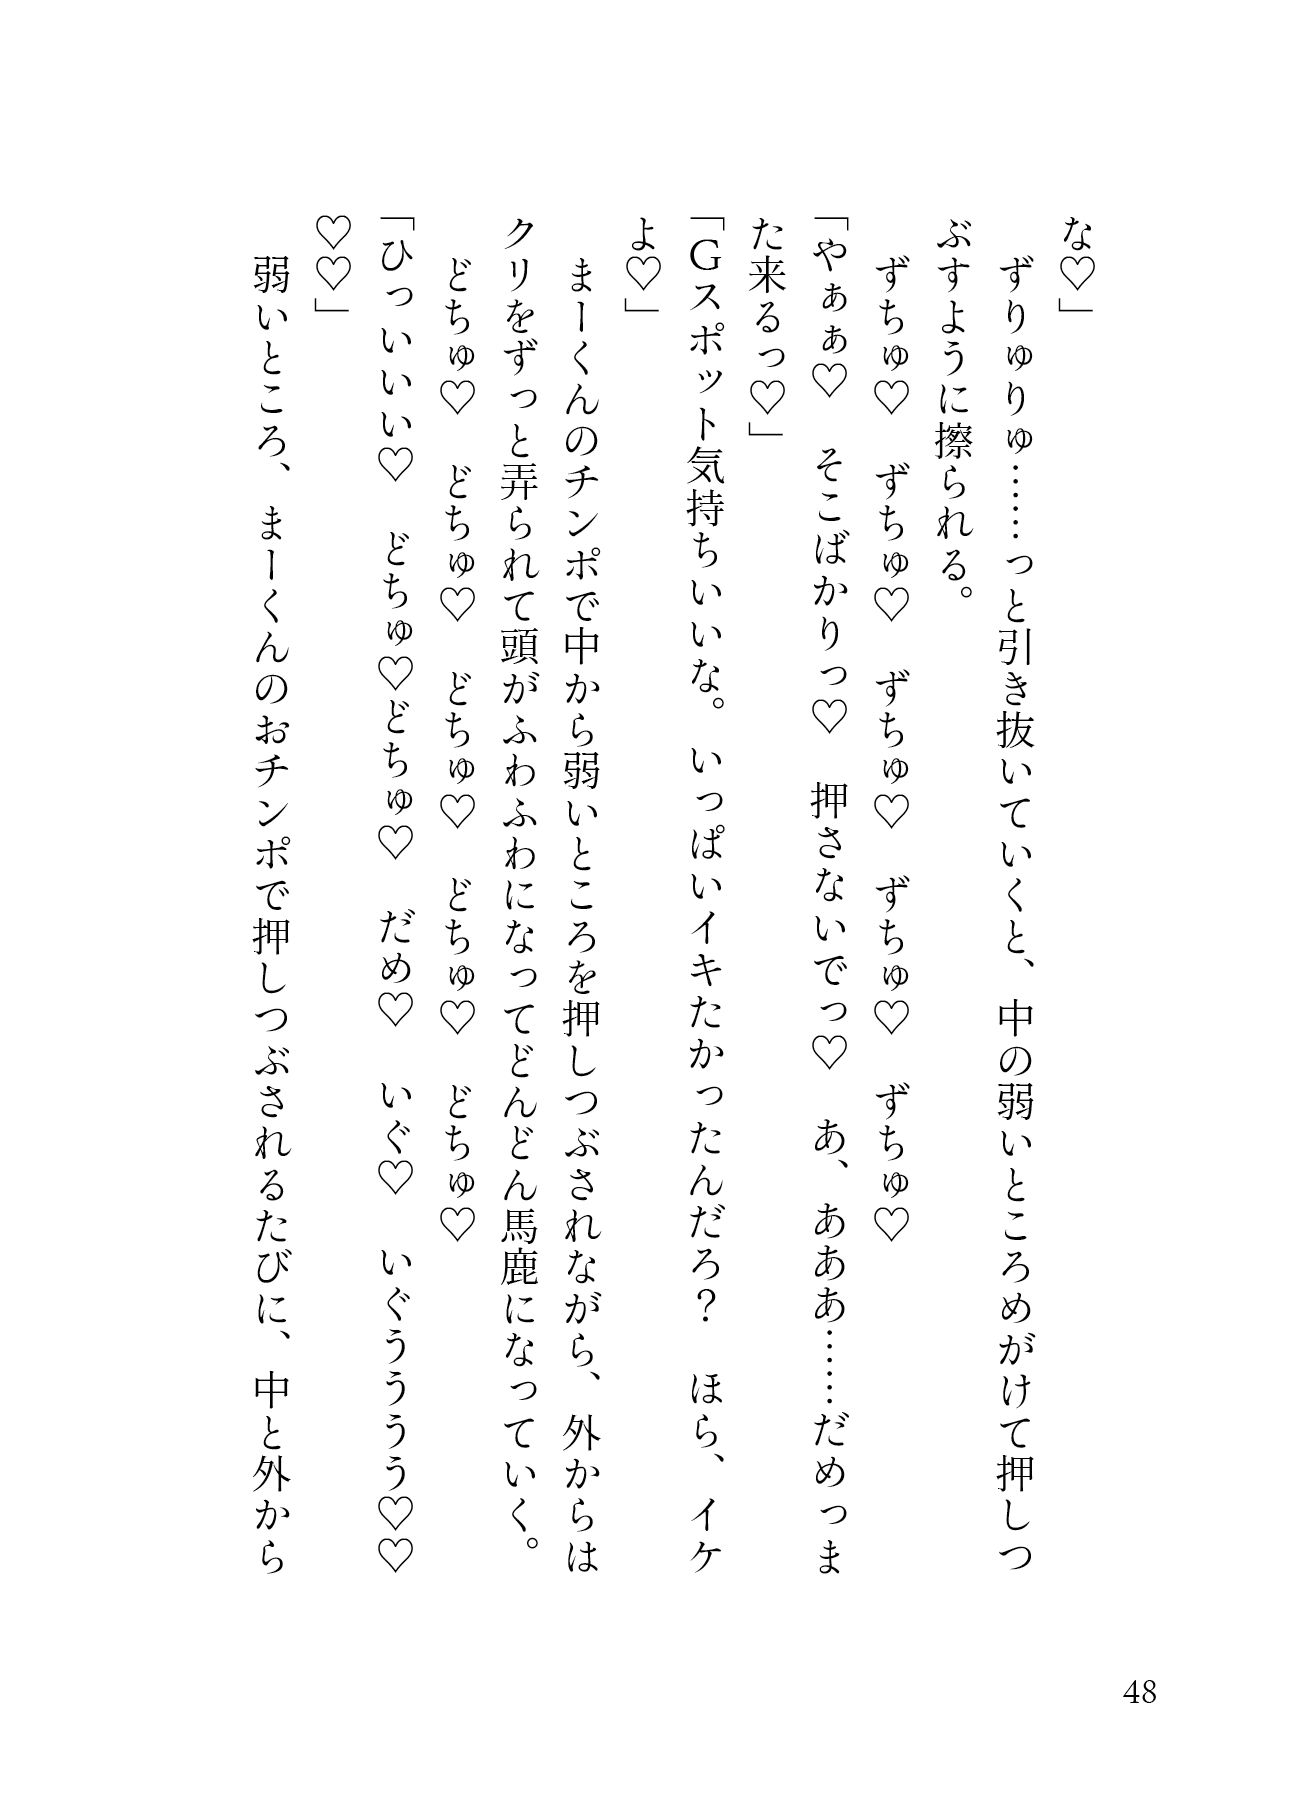 な♡」
ずりゅりゅ……っと引き抜いていくと、中の弱いところめがけて押しつ
ぶすように擦られる。
ずちゅ♡　ずちゅ♡　ずちゅ♡　ずちゅ♡　ずちゅ♡
「やぁぁ♡　そこばかりっ♡　押さないでっ♡　あ、あああ……だめっま
た来るっ♡」
「Gスポット気持ちいいな。いっぱいイキたかったんだろ？　ほら、イケ
よ♡」
まーくんのチンポで中から弱いところを押しつぶされながら、外からは
クリをずっと弄られて頭がふわふわになってどんどん馬鹿になっていく。
どちゅ♡　どちゅ♡　どちゅ♡　どちゅ♡　どちゅ♡
「ひっいいい♡　どちゅ♡どちゅ♡　だめ♡　いぐ♡　いぐうううう♡♡
♡♡」
弱いところ、まーくんのおチンポで押しつぶされるたびに、中と外から
48